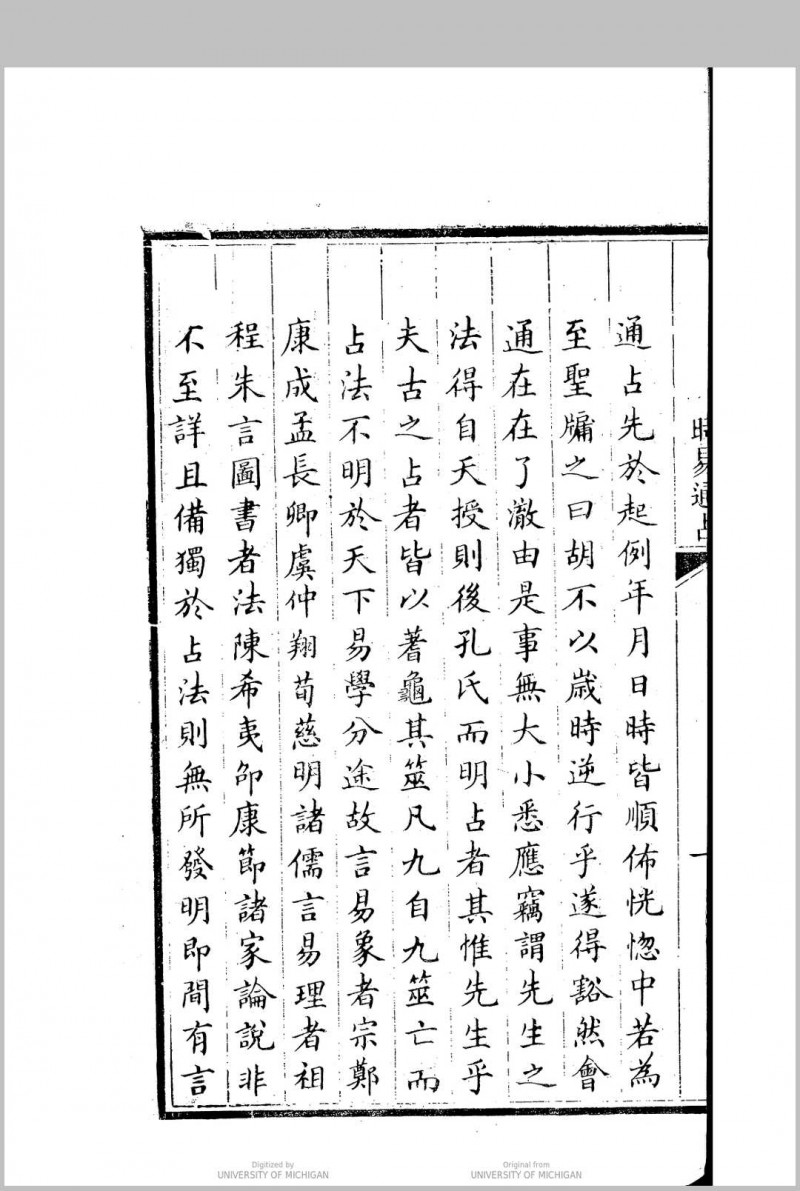 時易通占
一
通占先於起例年月日時皆順佈恍惚中若為
至聖牖之曰胡不以歲時逆行乎遂得豁然會
通在在了澈由是事無大小悉應竊謂先生之
法得自天授則後孔氏而明占者其惟先生乎
夫古之占者皆以蓍龜其筮凡九自九筮亡而
占法不明於天下易學分途故言易象者宗鄭
康成孟長卿虞仲翔荀慈明諸儒言易理者祖
程朱言圖書者法陳希夷邵康節諸家論說非
不至詳且備獨於占法則無所發明即間有言
Digitized by
UNIVERSITY OF MICHIGAN
Original from
UNIVERSITY OF MICHIGAN